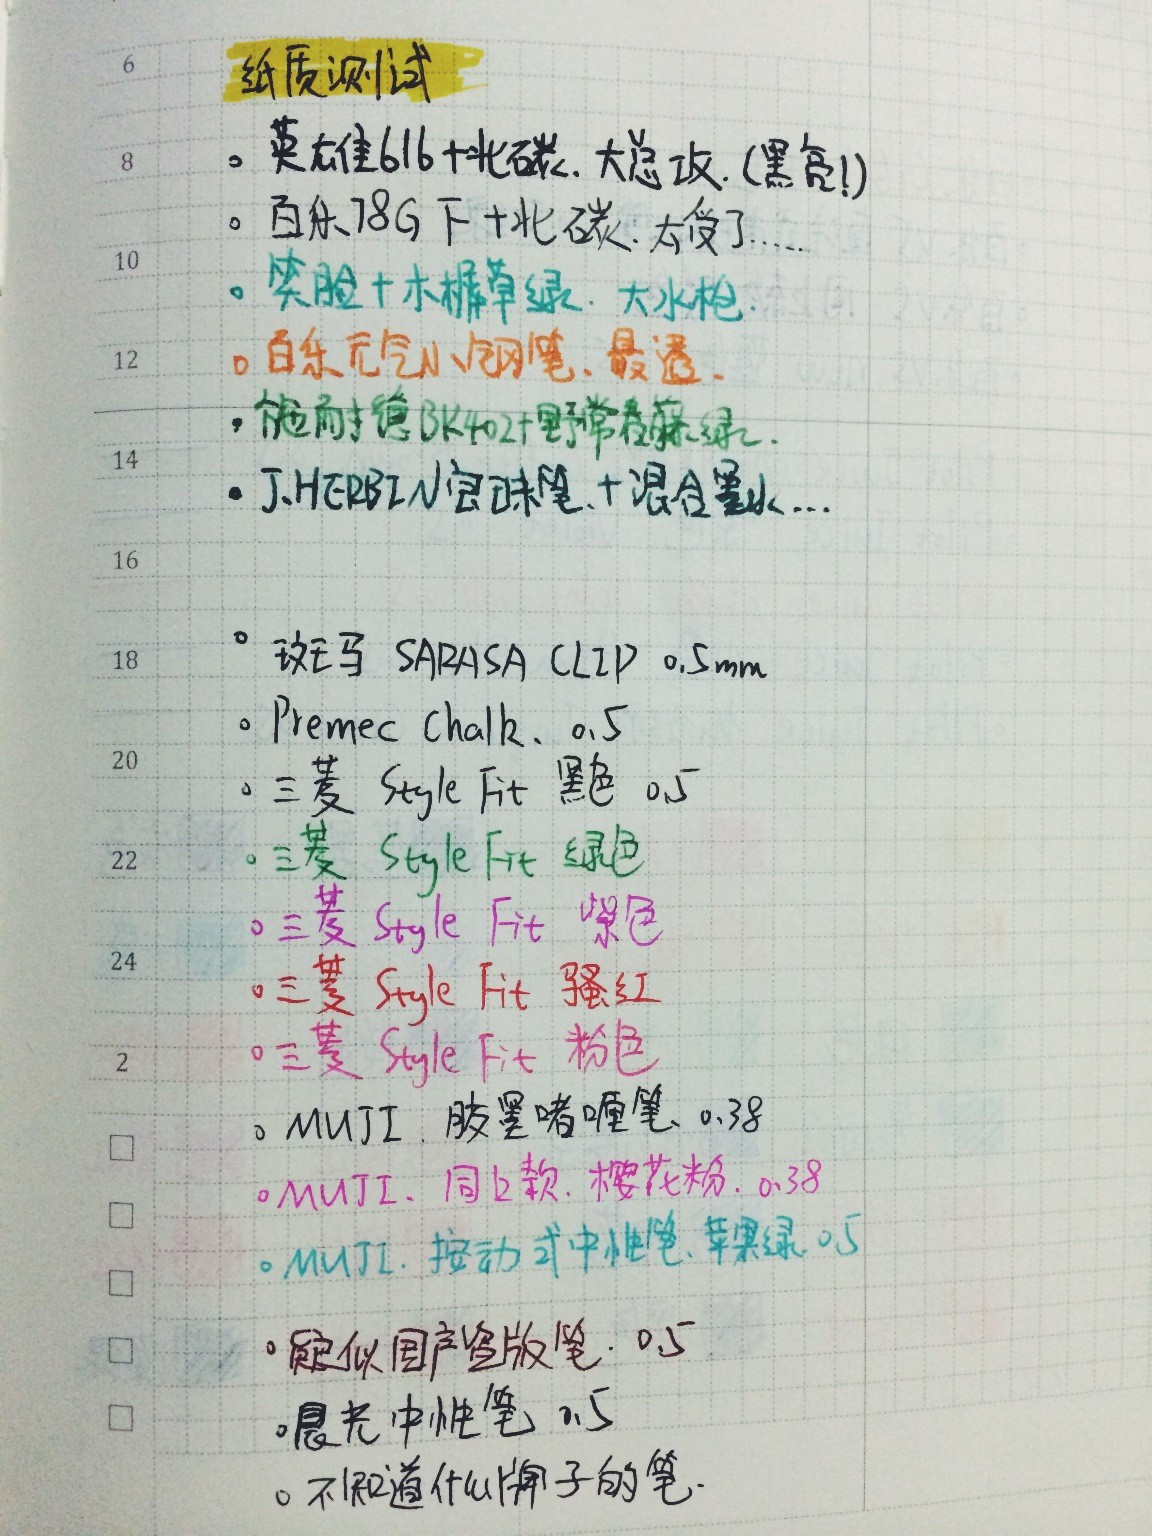 纸质测试
6
8
英雄佳616+北碳.大总攻.(黑亮!)
百乐78G F+北碳.太受了......
10
笑脸+木槲草绿.大水枪.
12
百乐元气小钢笔、最透.
施耐德BK402+野常春藤绿.
14
J.HERBIN宝珠笔.+混合墨水...
16
18
斑马 SARASA CLIP 0.5mm
Premec Chalk、0.5
20
三菱 Style Fit 黑色 0.5
22
三菱 Style Fit 绿色
三菱 Style Fit 紫色
24
三菱 Style Fit 骚红
2
三菱 Style Fit 粉色
MUJI.胶墨啫喱笔、0.38
MUJI、同上款.樱花粉.0.38
MUJI.按动式中性笔、苹果绿.0.5
疑似国产盗版笔.0.5
晨光中性笔 0.5
不知道什么牌子的笔.